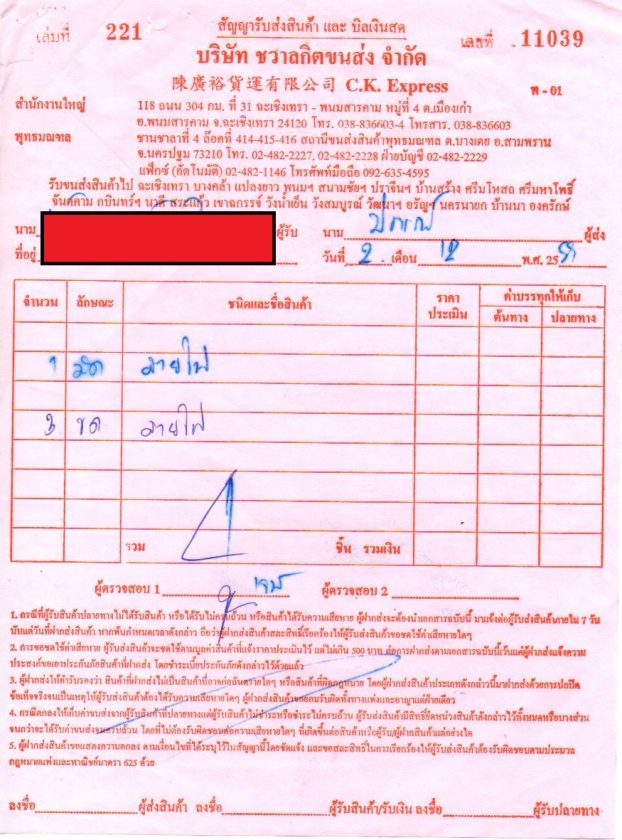 สัญญารับส่งสินค้า และ บิลเงินสด
เล่มที่ 221 เลขที่ 11039
บริษัท ชวาลกิตขนส่ง จำกัด
陳廣裕貨運有限公司 C.K. Express
พ-01
สำนักงานใหญ่ 118 ถนน 304 กม. ที่ 31 ฉะเชิงเทรา - พนมสารคาม หมู่ที่ 4 ต.เมืองเก่า
อ.พนมสารคาม จ.ฉะเชิงเทรา 24120 โทร. 038-836603-4 โทรสาร. 038-836603
พุทธมณฑล ชานชาลาที่ 4 ล๊อคที่ 414-415-416 สถานีขนส่งสินค้าพุทธมณฑล ต.บางเตย อ.สามพราน
จ.นครปฐม 73210 โทร. 02-482-2227, 02-482-2228 ฝ่ายบัญชี 02-482-2229
แฟ็กซ์ (อัตโนมัติ) 02-482-1146 โทรศัพท์มือถือ 092-635-4595
รับขนส่งสินค้าไป ฉะเชิงเทรา บางคล้า แปลงยาว พนมฯ สนามชัยฯ ปราจีนฯ บ้านสร้าง ศรีมโหสถ ศรีมหาโพธิ์
จันตคาม กบินทร์ฯ นาดี สระแก้ว เขาฉกรรจ์ วังน้ำเย็น วังสมบูรณ์ วัฒนาฯ อรัญฯ นครนายก บ้านนา องครักษ์
นาม ผู้รับ นาม ผู้ส่ง
ที่อยู่ วันที่ 2 เดือน 12 พ.ศ. 25
จำนวน ลักษณะ ชนิดและชื่อสินค้า ราคาประเมิน ค่าบรรทุกให้เก็บ
ต้นทาง ปลายทาง
1 มัด สายไฟ
3 ขด สายไฟ
รวม 4 ชิ้น รวมเงิน
ผู้ตรวจสอบ 1 ผู้ตรวจสอบ 2
1. กรณีที่ผู้รับสินค้าปลายทางไม่ได้รับสินค้า หรือได้รับไม่ครบถ้วน หรือสินค้าได้รับความเสียหาย ผู้ฝากส่งจะต้องนำเอกสารฉบับนี้ มาแจ้งต่อผู้รับส่งสินค้าภายใน 7 วัน
นับแต่วันที่ฝากส่งสินค้า หากพ้นกำหนดเวลาดังกล่าว ถือว่าผู้ฝากส่งสินค้าสละสิทธิ์เรียกร้องให้ผู้รับส่งสินค้าชดใช้ค่าเสียหายใดๆ
2. การชดใช้ค่าเสียหาย ผู้รับส่งสินค้าจะชดใช้ตามมูลค่าสินค้าที่แจ้งราคาประเมินไว้ แต่ไม่เกิน 500 บาท ต่อการฝากส่งตามเอกสารฉบับนี้เว้นแต่ผู้ฝากส่งสินค้าแจ้งความ
ประสงค์ขอเอาประกันภัยสินค้าที่ฝากส่ง โดยชำระเบี้ยประกันภัยดังกล่าวไว้ด้วยแล้ว
3. ผู้ฝากส่งสินค้าให้คำรับรองว่า สินค้าที่ฝากส่งไม่เป็นสินค้าที่อาจก่ออันตรายใดๆ หรือสินค้าที่ผิดกฎหมาย โดยผู้ฝากส่งสินค้าประเภทดังกล่าวนี้มาฝากส่งด้วยการปกปิด
ข้อเท็จจริงจนเป็นเหตุให้ผู้รับส่งสินค้าต้องได้รับความเสียหายใดๆ ผู้ฝากส่งสินค้าจะยอมรับผิดทั้งทางแพ่งและอาญาแต่ฝ่ายเดียว
4. กรณีตกลงให้เก็บค่าขนส่งจากผู้รับสินค้าที่ปลายทางแต่ผู้รับสินค้าไม่ชำระหรือชำระไม่ครบถ้วน ผู้รับส่งสินค้ามีสิทธิยึดหน่วงสินค้าดังกล่าวไว้ทั้งหมดหรือบางส่วน
จนกว่าจะได้รับค่าขนส่งจนครบถ้วน โดยที่ไม่ต้องรับผิดชอบต่อความเสียหายใดๆ ที่เกิดขึ้นต่อสินค้าหรือผู้รับ/ผู้ฝากส่งสินค้าแต่อย่างใด
5. ผู้ฝากส่งสินค้าขอแสดงความตกลง ตามเงื่อนไขที่ได้ระบุไว้ในสัญญานี้โดยชัดแจ้ง และขอสละสิทธิ์ในการเรียกร้องให้ผู้รับส่งสินค้าต้องรับผิดชอบตามประมวล
กฎหมายแพ่งและพาณิชย์มาตรา 625 ด้วย
ลงชื่อ ผู้ส่งสินค้า ลงชื่อ ผู้รับสินค้า/รับเงิน ลงชื่อ ผู้รับปลายทาง